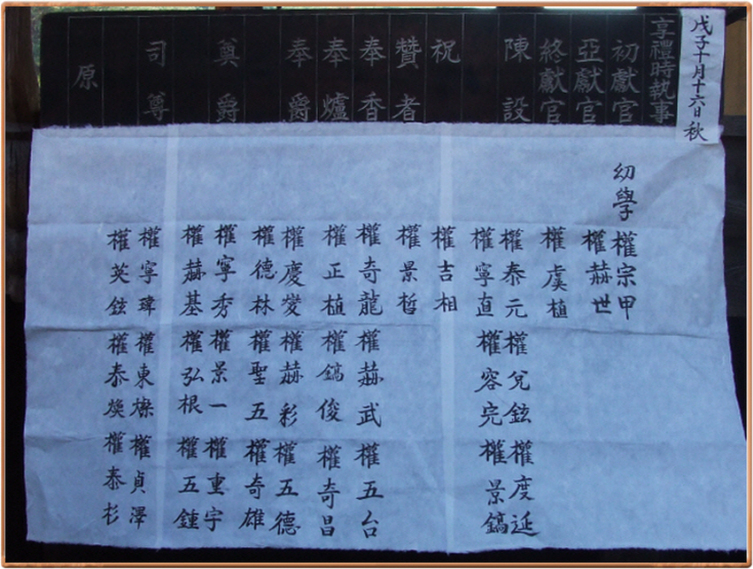 戊子十月十六日 秋
享禮時執事
初獻官
亞獻官
終獻官
陳設
祝
贊者
奉香
奉爐
奉爵
奠爵
司尊
原
幼學 權宗甲
權赫世
權虞植
權泰元 權兌鉉 權度延
權寧直 權容完 權景鎬
權吉相
權景哲
權奇龍 權赫武 權五台
權正植 權鎬俊 權奇昌
權慶燮 權赫彩 權五德
權德林 權聖五 權奇雄
權寧秀 權景一 權重宇
權赫基 權弘根 權五鍾
權寧瑋 權東燦 權貞澤
權英鉉 權泰煥 權泰杉